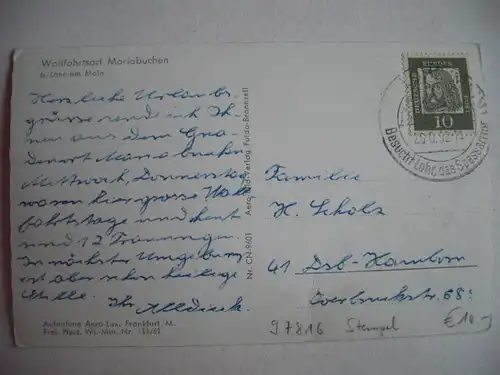 Wallfahrtsort Mariabuchen
b. Lohr am Main
Herzliche Urlaubs-
grüsse sende ich Ih-
nen aus dem Gna-
denort Mariabuchen
Mittwoch, Donnerstag
waren hier grosse Wall
fahrtstage und heut
und 12 Trauungen.
In nächster Umgebung
ist aber schon heilige
Stille. Ihr
Aufnahme Aero-Lux, Frankfurt M.
Frei. Hess. Wi.-Min. Nr.
Aero-Bild-Verlag Fulda-Bronnzell
Nr. CN 9401
DEUTSCHE BUNDESPOST
10
Besucht Lohr, das Spessarttor
Familie
H. Scholz
41 Dsb-Hamborn
Overbruckstr 68
97816 Stempel
€10.-